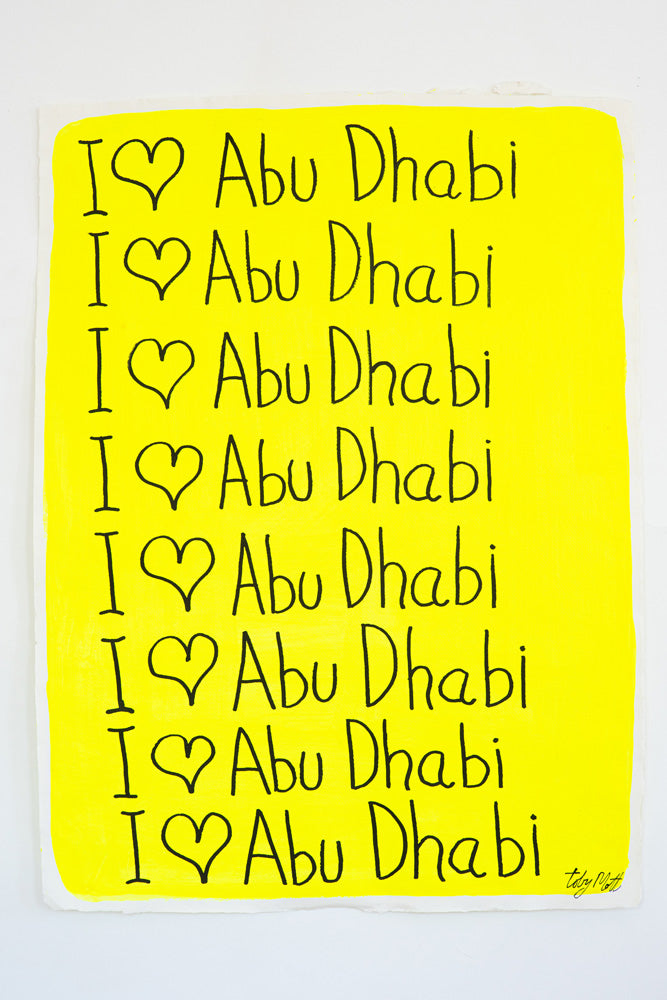 I ♡ Abu Dhabi
I ♡ Abu Dhabi
I ♡ Abu Dhabi
I ♡ Abu Dhabi
I ♡ Abu Dhabi
I ♡ Abu Dhabi
I ♡ Abu Dhabi
I ♡ Abu Dhabi
Toby Mott